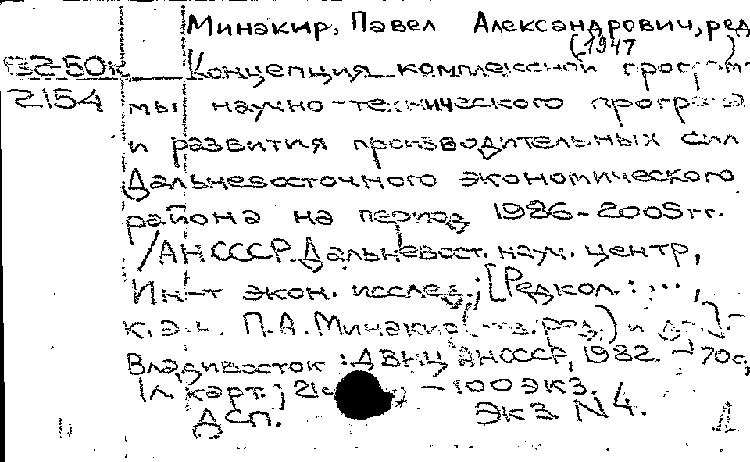 Минакир, Павел Александрович, ред
(1947 )
Концепция комплексной програм-
2154 мы научно-технического прогресса
и развития производительных сил
Дальневосточного экономического
района на период 1986-2005 гг.
/АН СССР. Дальневост. науч. центр,
Ин-т экон. исслед.; [Редкол.: ...,
к.э.н. П.А. Минакир (отв. ред.) и др.].-
Владивосток: ДВНЦ АН СССР, 1982. - 70с,
(л. карт.) - 100 экз.
ДСП. Экз. N 4.